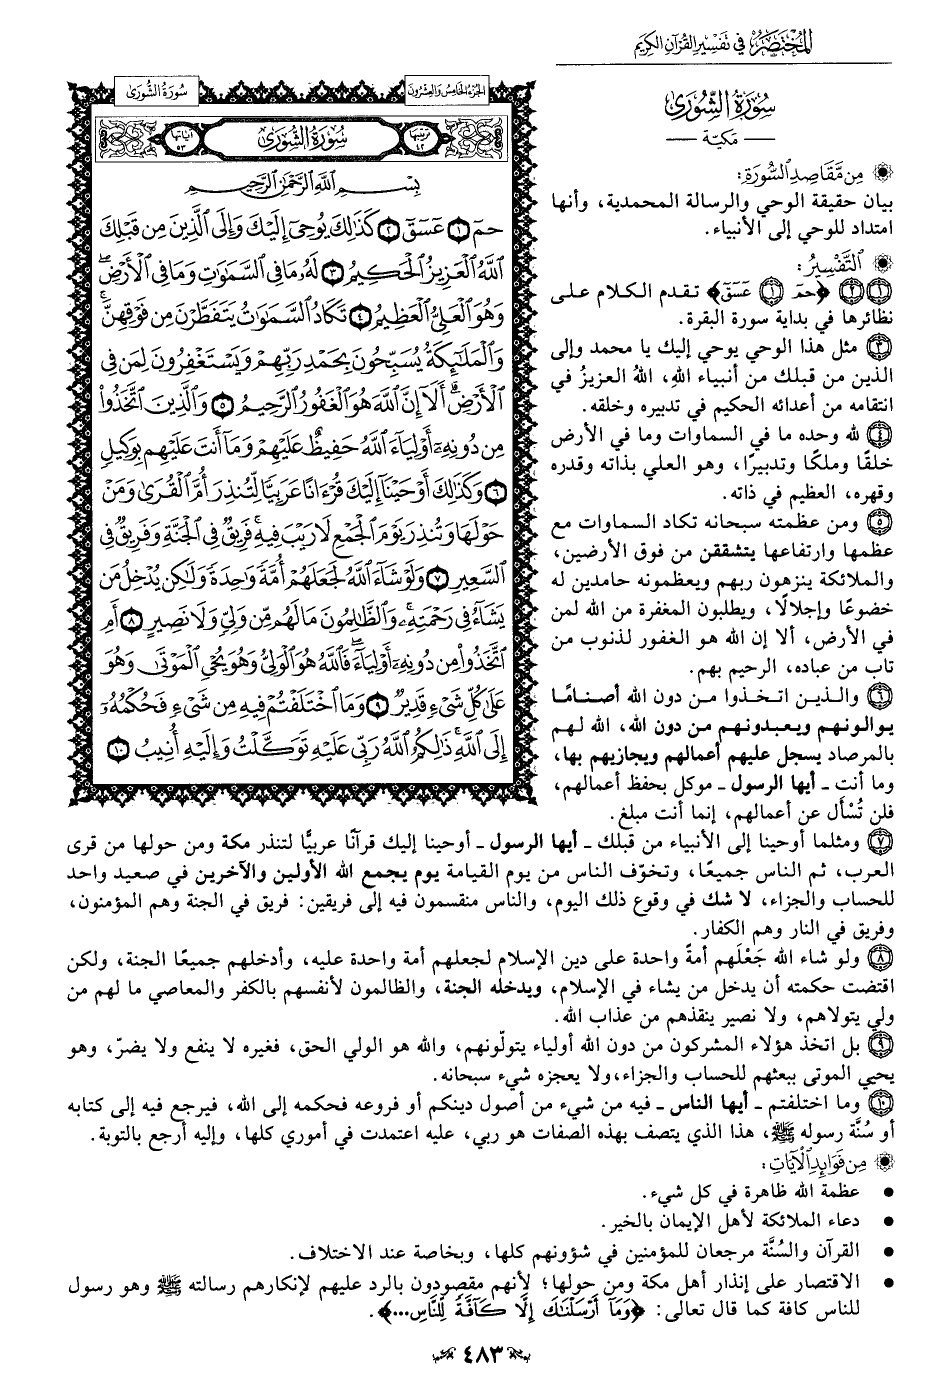 المختصر في تفسير القرآن الكريم
سُورَةُ الشُّورَى
— مَكيّة —
مِن مَّقَاصِدِ السُّورَةِ:
بيان حقيقة الوحي والرسالة المحمدية، وأنها
امتداد للوحي إلى الأنبياء.
التَّفْسِيرُ:
١ ٢ ﴿حمٓ ١ عٓسٓقٓ﴾ تقدم الكلام على
نظائرها في بداية سورة البقرة.
٣ مثل هذا الوحي يوحي إليك يا محمد وإلى
الذين من قبلك من أنبياء الله، اللهُ العزيزُ في
انتقامه من أعدائه الحكيم في تدبيره وخلقه.
٤ لله وحده ما في السماوات وما في الأرض
خلقًا وملكًا وتدبيرًا، وهو العلي بذاته وقدره
وقهره، العظيم في ذاته.
٥ ومن عظمته سبحانه تكاد السماوات مع
عظمها وارتفاعها يتشققن من فوق الأرضين،
والملائكة ينزهون ربهم ويعظمونه حامدين له
خضوعًا وإجلالًا، ويطلبون المغفرة من الله لمن
في الأرض، ألا إن الله هو الغفور لذنوب من
تاب من عباده، الرحيم بهم.
٦ والذين اتخذوا من دون الله أصنامًا
يوالونهم ويعبدونهم من دون الله، الله لهم
بالمرصاد يسجل عليهم أعمالهم ويجازيهم بها،
وما أنت ـ أيها الرسول ـ موكل بحفظ أعمالهم،
فلن تُسْأَل عن أعمالهم، إنما أنت مبلغ.
الجزء الخامس والعشرون
سورة الشورى
ترتيبها ٤٢
سُورَةُ الشُّورَى
آياتها ٥٣
بِسْمِ اللَّهِ الرَّحْمَٰنِ الرَّحِيمِ
حمٓ ١ عٓسٓقٓ ٢ كَذَٰلِكَ يُوحِيٓ إِلَيْكَ وَإِلَى الَّذِينَ مِن قَبْلِكَ
اللَّهُ الْعَزِيزُ الْحَكِيمُ ٣ لَهُۥ مَا فِي السَّمَٰوَٰتِ وَمَا فِي الْأَرْضِۖ
وَهُوَ الْعَلِيُّ الْعَظِيمُ ٤ تَكَادُ السَّمَٰوَٰتُ يَتَفَطَّرْنَ مِن فَوْقِهِنَّۚ
وَالْمَلَٰٓئِكَةُ يُسَبِّحُونَ بِحَمْدِ رَبِّهِمْ وَيَسْتَغْفِرُونَ لِمَن فِي
الْأَرْضِۗ أَلَآ إِنَّ اللَّهَ هُوَ الْغَفُورُ الرَّحِيمُ ٥ وَالَّذِينَ اتَّخَذُوا۟
مِن دُونِهِۦٓ أَوْلِيَآءَ اللَّهُ حَفِيظٌ عَلَيْهِمْ وَمَآ أَنتَ عَلَيْهِم بِوَكِيلٍ
٦ وَكَذَٰلِكَ أَوْحَيْنَآ إِلَيْكَ قُرْءَانًا عَرَبِيًّا لِّتُنذِرَ أُمَّ الْقُرَىٰ وَمَنْ
حَوْلَهَا وَتُنذِرَ يَوْمَ الْجَمْعِ لَا رَيْبَ فِيهِۚ فَرِيقٌ فِي الْجَنَّةِ وَفَرِيقٌ فِي
السَّعِيرِ ٧ وَلَوْ شَآءَ اللَّهُ لَجَعَلَهُمْ أُمَّةً وَٰحِدَةً وَلَٰكِن يُدْخِلُ مَن
يَشَآءُ فِي رَحْمَتِهِۦۚ وَالظَّٰلِمُونَ مَا لَهُم مِّن وَلِيٍّ وَلَا نَصِيرٍ ٨ أَمِ
اتَّخَذُوا۟ مِن دُونِهِۦٓ أَوْلِيَآءَۖ فَاللَّهُ هُوَ الْوَلِيُّ وَهُوَ يُحْيِ الْمَوْتَىٰ وَهُوَ
عَلَىٰ كُلِّ شَيْءٍ قَدِيرٌ ٩ وَمَا اخْتَلَفْتُمْ فِيهِ مِن شَيْءٍ فَحُكْمُهُۥٓ
إِلَى اللَّهِۚ ذَٰلِكُمُ اللَّهُ رَبِّي عَلَيْهِ تَوَكَّلْتُ وَإِلَيْهِ أُنِيبُ ١٠
٧ ومثلما أوحينا إلى الأنبياء من قبلك ـ أيها الرسول ـ أوحينا إليك قرآنًا عربيًّا لتنذر مكة ومن حولها من قرى
العرب، ثم الناس جميعًا، وتخوّف الناس من يوم القيامة يوم يجمع الله الأولين والآخرين في صعيد واحد
للحساب والجزاء، لا شك في وقوع ذلك اليوم، والناس منقسمون فيه إلى فريقين: فريق في الجنة وهم المؤمنون،
وفريق في النار وهم الكفار.
٨ ولو شاء الله جَعْلَهم أمةً واحدة على دين الإسلام لجعلهم أمة واحدة عليه، وأدخلهم جميعًا الجنة، ولكن
اقتضت حكمته أن يدخل من يشاء في الإسلام، ويدخله الجنة، والظالمون لأنفسهم بالكفر والمعاصي ما لهم من
ولي يتولاهم، ولا نصير ينقذهم من عذاب الله.
٩ بل اتخذ هؤلاء المشركون من دون الله أولياء يتولّونهم، والله هو الولي الحق، فغيره لا ينفع ولا يضرّ، وهو
يحيي الموتى ببعثهم للحساب والجزاء، ولا يعجزه شيء سبحانه.
١٠ وما اختلفتم ـ أيها الناس ـ فيه من شيء من أصول دينكم أو فروعه فحكمه إلى الله، فيرجع فيه إلى كتابه
أو سُنَّة رسوله ﷺ، هذا الذي يتصف بهذه الصفات هو ربي، عليه اعتمدت في أموري كلها، وإليه أرجع بالتوبة.
مِن فَوَائِدِ الْآيَاتِ:
• عظمة الله ظاهرة في كل شيء.
• دعاء الملائكة لأهل الإيمان بالخير.
• القرآن والسُنَّة مرجعان للمؤمنين في شؤونهم كلها، وبخاصة عند الاختلاف.
• الاقتصار على إنذار أهل مكة ومن حولها؛ لأنهم مقصودون بالرد عليهم لإنكارهم رسالته ﷺ وهو رسول
للناس كافة كما قال تعالى: ﴿وَمَآ أَرْسَلْنَٰكَ إِلَّا كَآفَّةً لِّلنَّاسِ...﴾.
٤٨٣